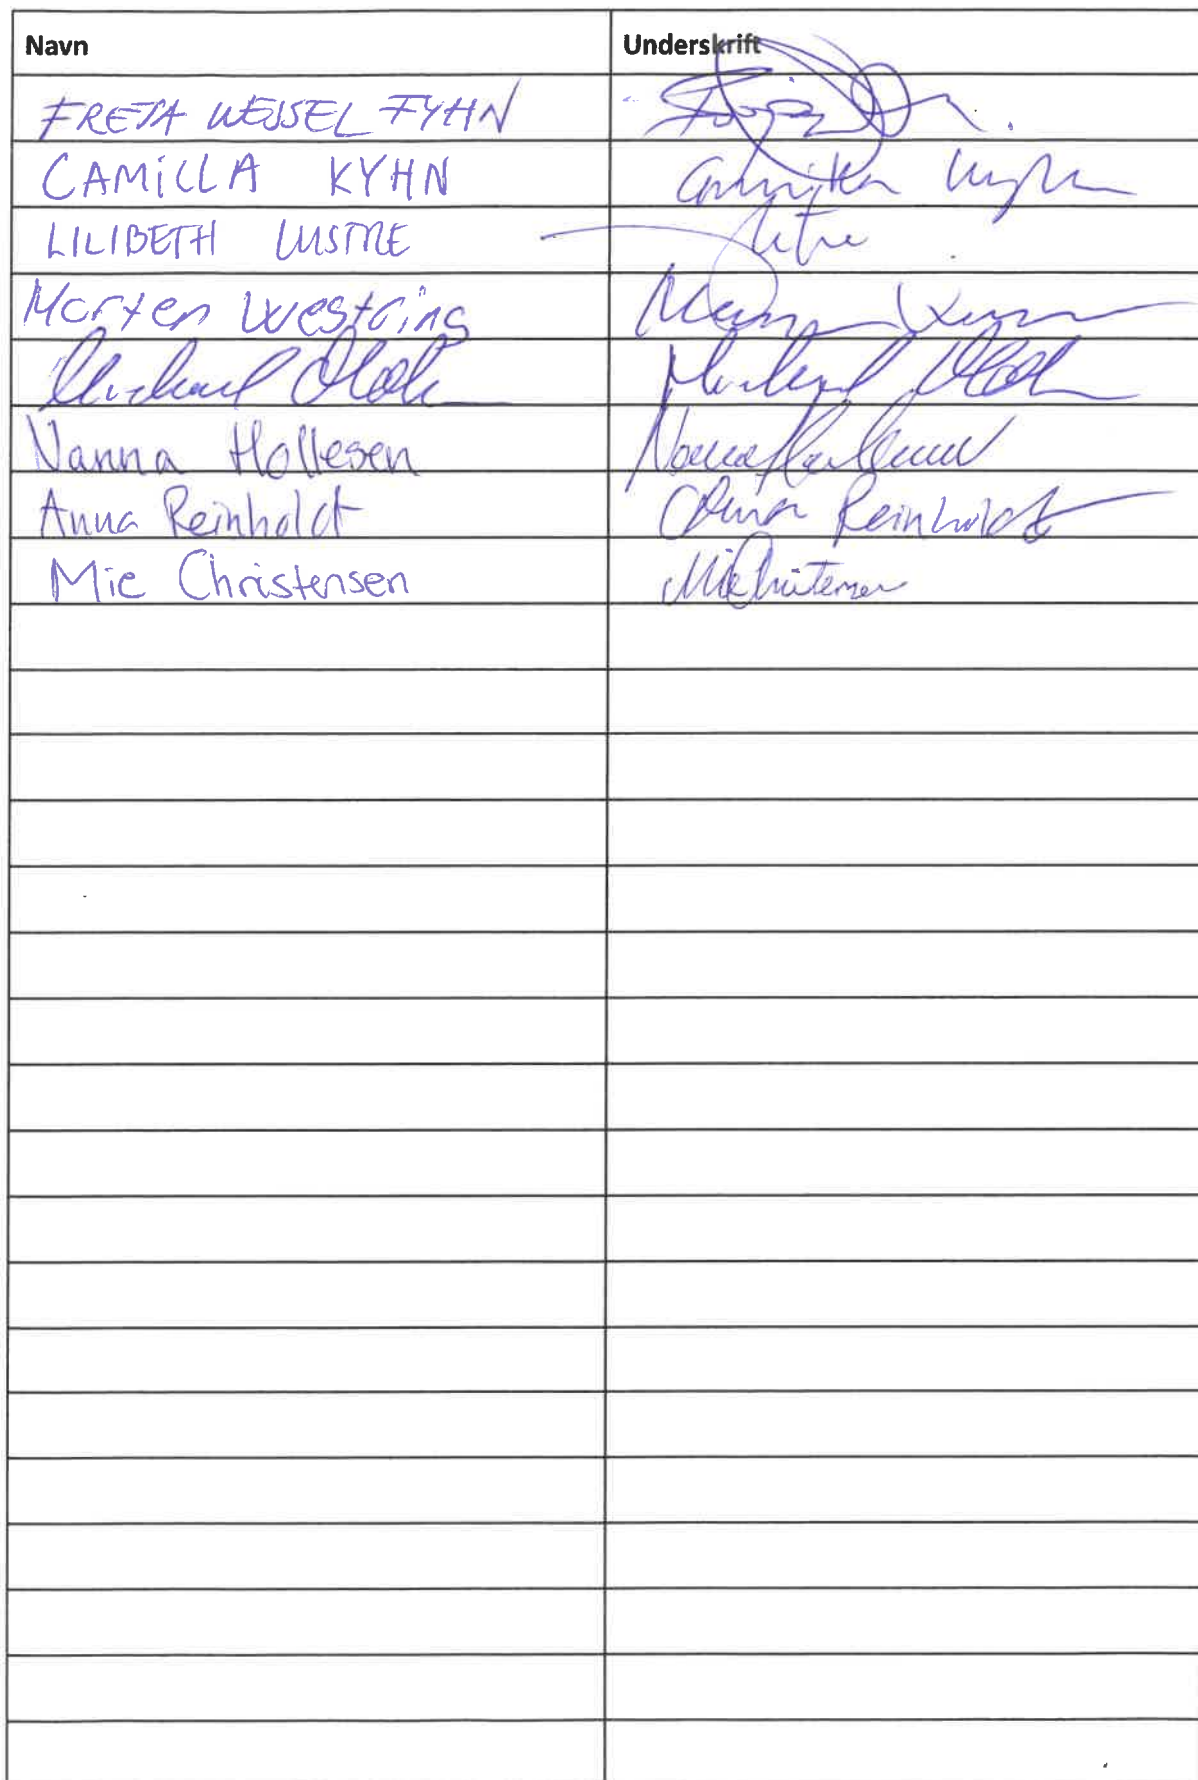 Navn Underskrift
FREJA WESSEL FYHN
CAMILLA KYHN Camilla Kyhn
LILIBETH LUSTRE
Morten Westring
Michael Michael
Nanna Hollesen Nanna
Anna Reinholdt Anna Reinholdt
Mie Christensen Mie Christensen